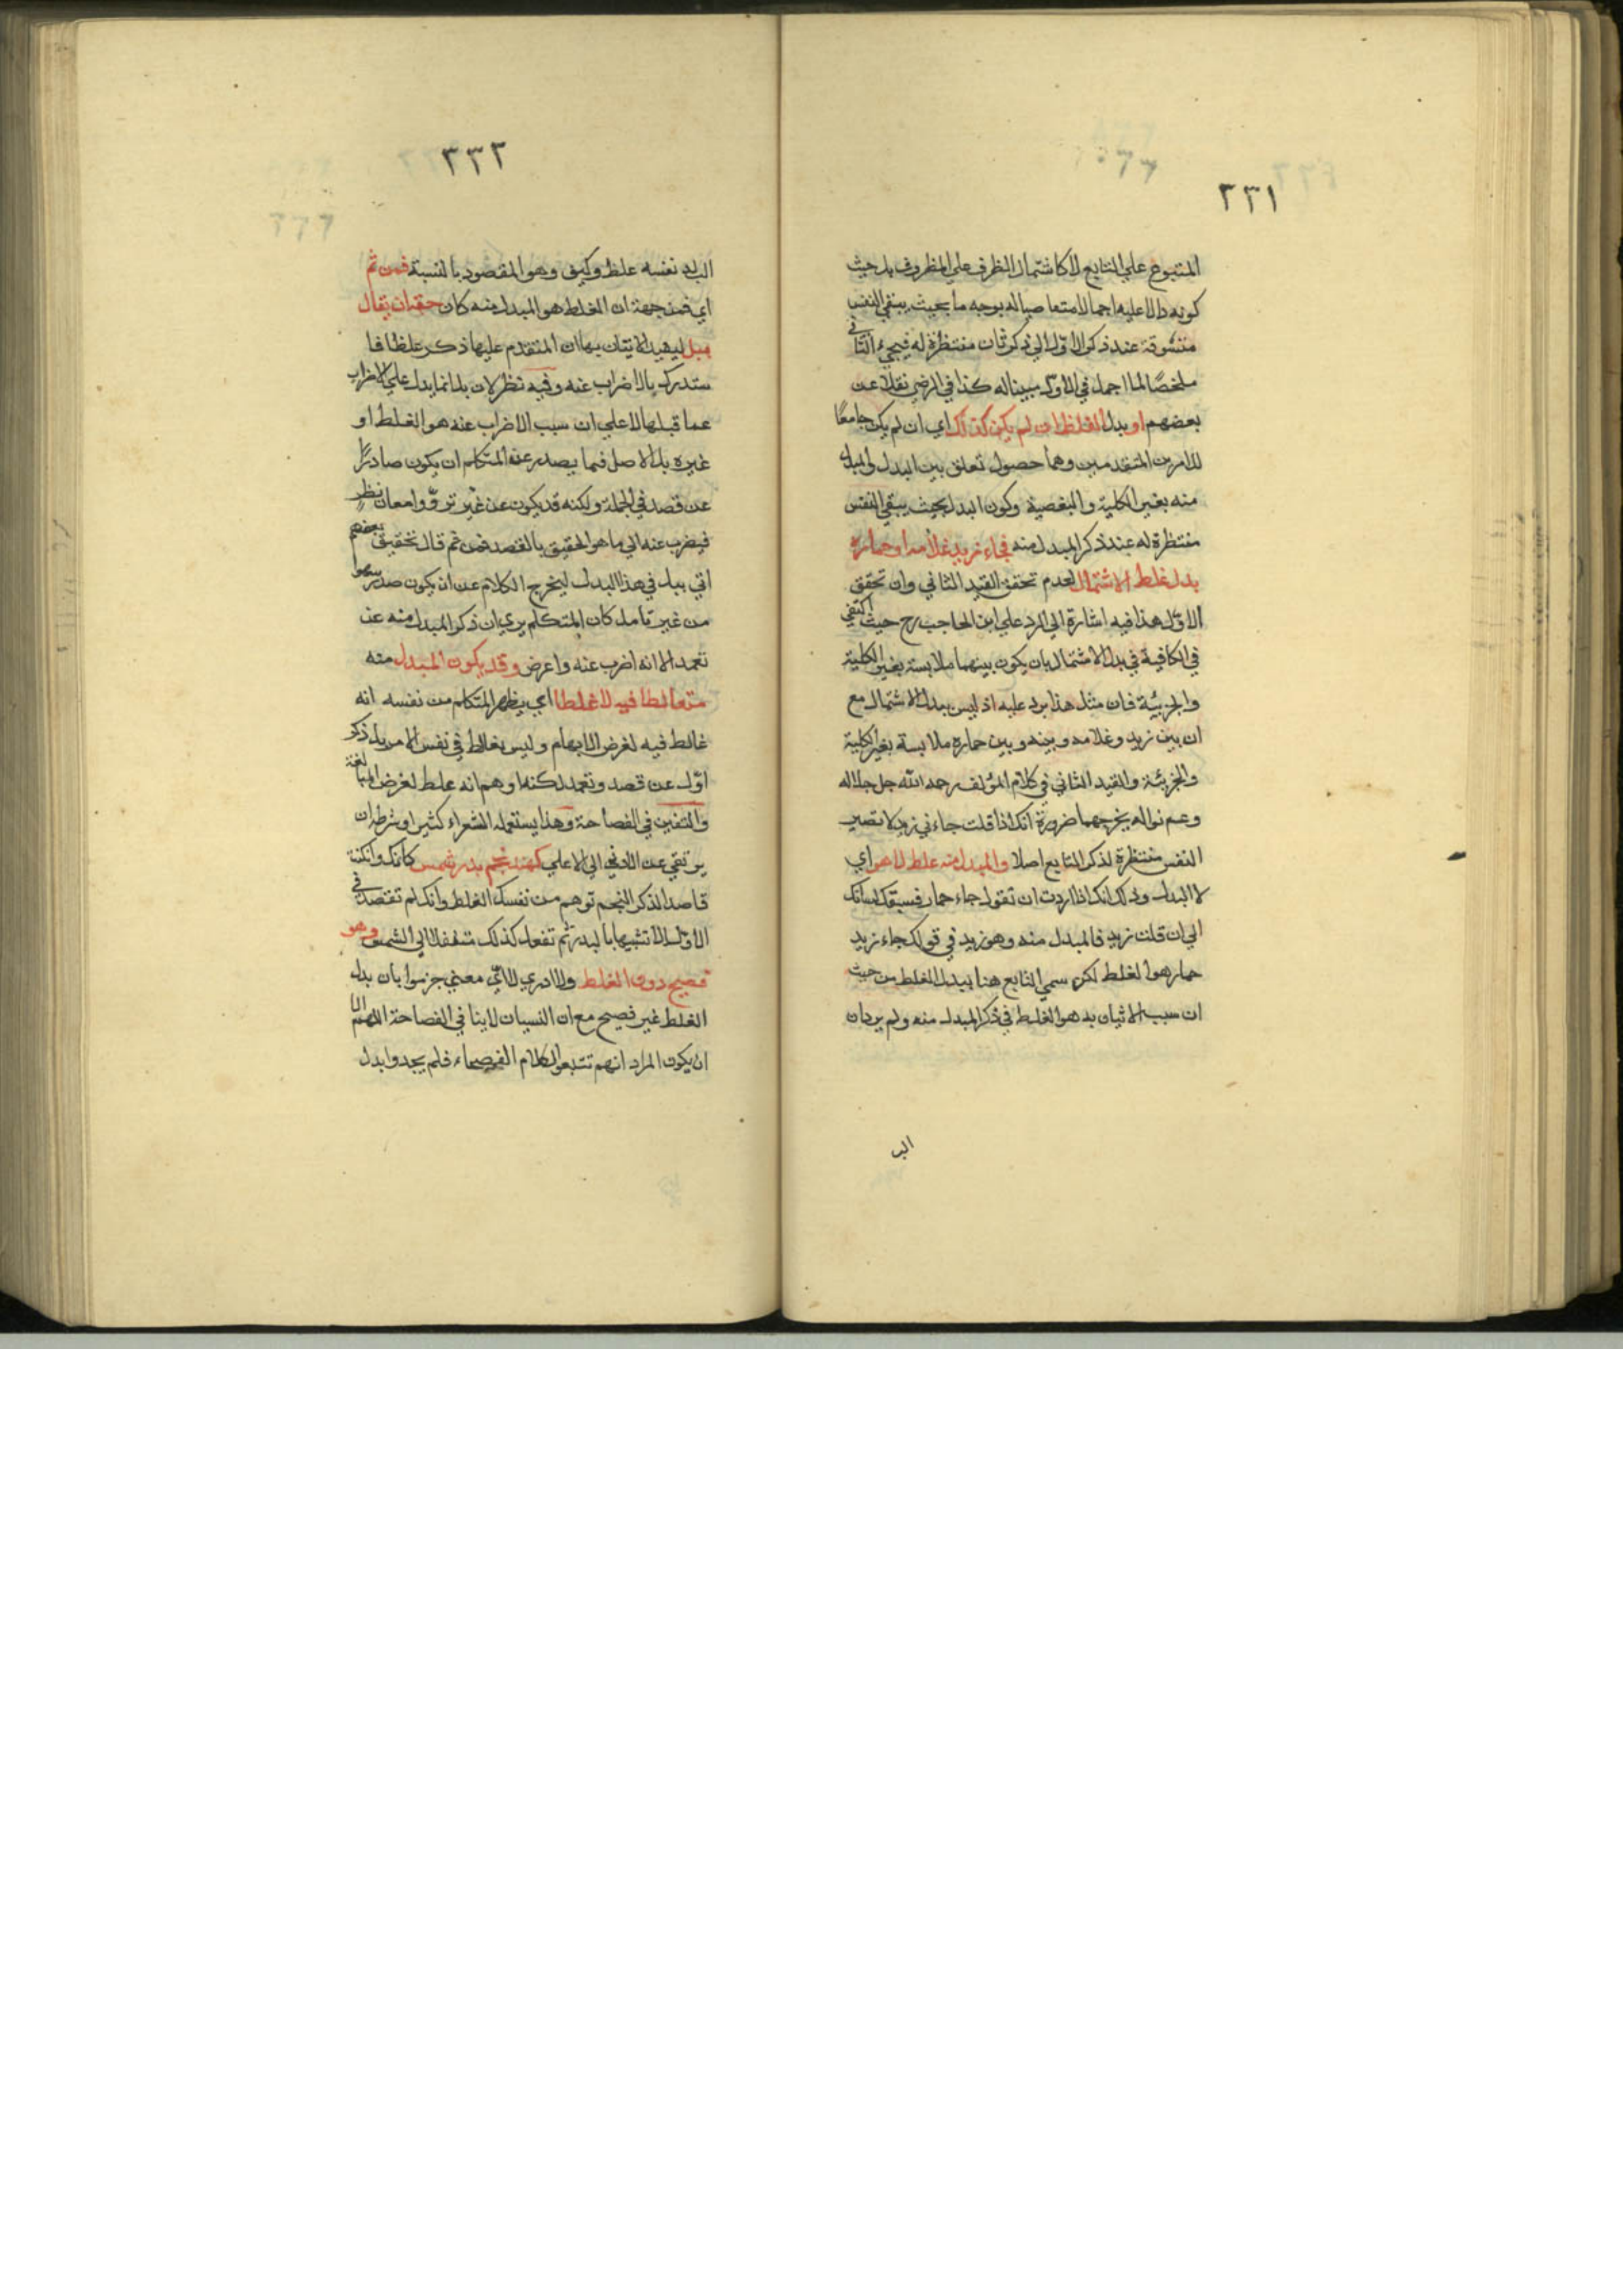 ٢٣١
المتبوع علي التابع لا كاشتمال الظرف علي المظروف بل حيث
كونه دالا عليه اجمالا متقاضيا له بوجه ما بحيث يبقي النفس
متشوقة عند ذكر الاول الي ذكر ثان منتظرة له فيجيء الثاني
ملخصًا لما اجمل في الاول مبينا له كذا في الرضي نقلا عن
بعضهم او بدل الغلط ان لم يكن كذلك اي ان لم يكن جامعًا
للامرين المتقدمين وهما حصول تعلق بين البدل والمبدل
منه بغير الكلية والبعضية وكون البدل بحيث يبقي النفس
منتظرة له عند ذكر المبدل منه فجاء زيد غلامه او حماره
بدل غلط لا اشتمال لعدم تحقق القيد الثاني وان تحقق
الاول هذا فيه اشارة الي الرد علي ابن الحاجب رح حيث اكتفي
في الكافية في بدل الاشتمال بان يكون بينهما ملابسة بغير الكلية
والجزئية فان مثل هذا يرد عليه اذ ليس ببدل الاشتمال مع
ان بين زيد وغلامه وبينه وبين حماره ملابسة بغير الكلية
والجزئية والقيد الثاني في كلام المؤلف رحمه الله جل جلاله
وعم نواله يخرجهما ضرورة انك اذا قلت جاءني زيد لا تصير
النفس منتظرة لذكر التابع اصلا والمبدل منه غلط لا هو اي
لا البدل وذلك انك اذا اردت ان تقول جاء حمار فسبقك لسانك
الي ان قلت زيد فالمبدل منه وهو زيد في قولك جاء زيد
حمار هو الغلط لكن سمي التابع هنا ببدل الغلط من حيث
ان سبب الاتيان به هو الغلط في ذكر المبدل منه ولم يرد ان
البد
٢٣٢
البدل نفسه غلط وكيف وهو المقصود بالنسبة فمن ثم
اي فمن جهة ان الغلط هو المبدل منه كان حقه ان يقال
ببل ليفيد الاتيان بها ان المتقدم عليها ذكر غلطا فا
ستدرك بالاضراب عنه وفيه نظر لان بل انما يدل علي الاضراب
عما قبلها لا علي ان سبب الاضراب عنه هو الغلط او
غيره بل الاصل فيما يصدر عن المتكلم ان يكون صادرًا
عن قصد في الجملة ولكنه قد يكون عن غير تروّ وامعان نظر
فيضرب عنه الي ما هو الحقيق بالقصد فمن ثم قال بعضهم تحقيق
اتي ببل في هذا البدل ليخرج الكلام عن ان يكون صدر سهوا
من غير تامل كان المتكلم يري ان ذكر المبدل منه عن
تعمد الا انه اضرب عنه واعرض وقد يكون المبدل منه
متغالطا فيه لا غلطا اي يظهر المتكلم من نفسه انه
غالط فيه لغرض الابهام وليس بغالط في نفس الامر بل ذكر
اوّل عن قصد وتعمد لكنه اوهم انه غلط لغرض المبالغة
والتفنن في الفصاحة وهذا يستعمله الشعراء كثيرا وشرطه ان
يرتقي عن الادني الي الاعلي كهند نجم بدر شمس كانك وانكنت
قاصدا لذكر النجم توهم من نفسك الغلط وانك لم تقصد في
الاول الا تشبيها بالبدر ثم تفعل كذلك متنقلا الي الشمس وهو
فصيح دون الغلط ولا ادري لاي معني جزموا بان بدل
الغلط غير فصيح مع ان النسيان لا ينافي الفصاحة اللهم الا
ان يكون المراد انهم تتبعوا كلام الفصحاء فلم يجدوا بدل